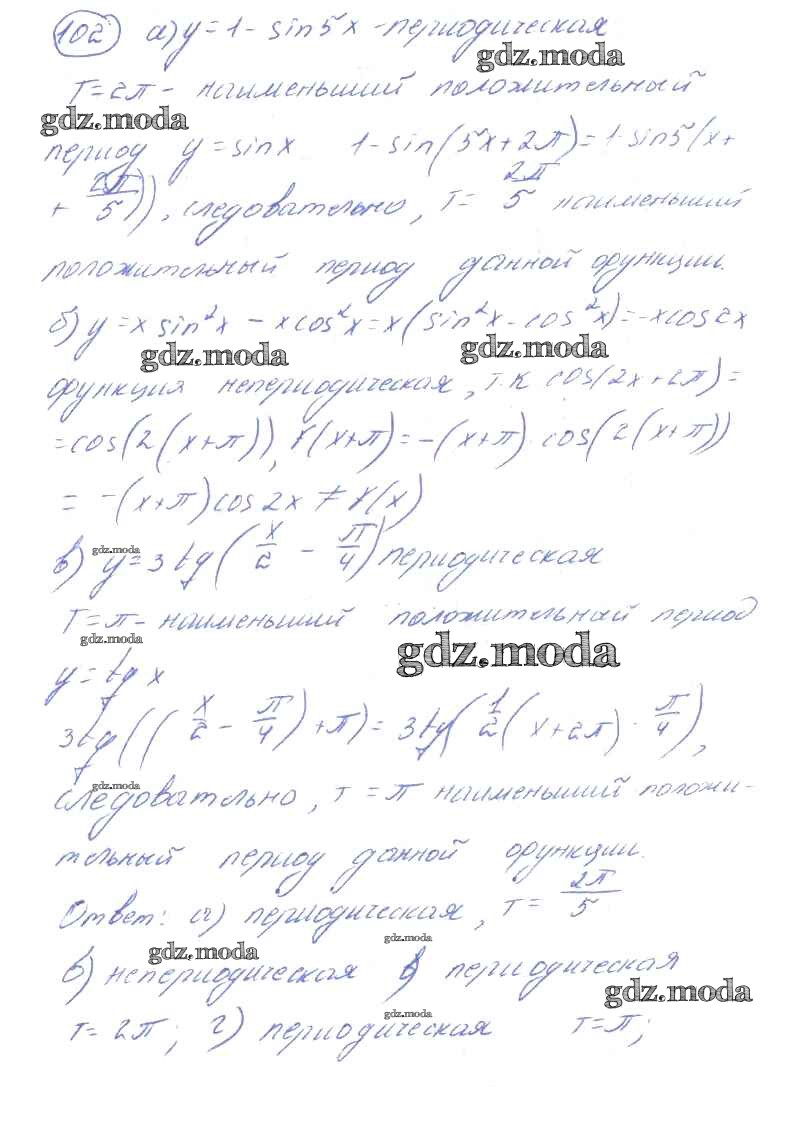 102 а) y = 1 - sin5x - периодическая
gdz.moda
T = 2π - наименьший положительный
gdz.moda
период y = sinx 1 - sin(5x + 2π) = 1 - sin5(x +
+ 2π/5)), следовательно, T = 2π/5 наименьший
положительный период данной функции.
б) y = x sin²x - x cos²x = x(sin²x - cos²x) = -x cos2x
gdz.moda gdz.moda
функция непериодическая, т.к cos(2x + 2π) =
= cos(2(x + π)), f(x + π) = -(x + π) · cos(2(x + π))
= -(x + π) cos 2x ≠ f(x)
gdz.moda
в) y = 3 tg(x/2 - π/4) периодическая
T = π - наименьший положительный период
gdz.moda gdz.moda
y = tg x
3tg((x/2 - π/4) + π) = 3tg(1/2(x + 2π) - π/4),
gdz.moda
следовательно, T = π наименьший положи-
тельный период данной функции.
Ответ: а) периодическая, T = 2π/5
gdz.moda gdz.moda
б) непериодическая в) периодическая
gdz.moda gdz.moda
T = 2π; г) периодическая T = π;